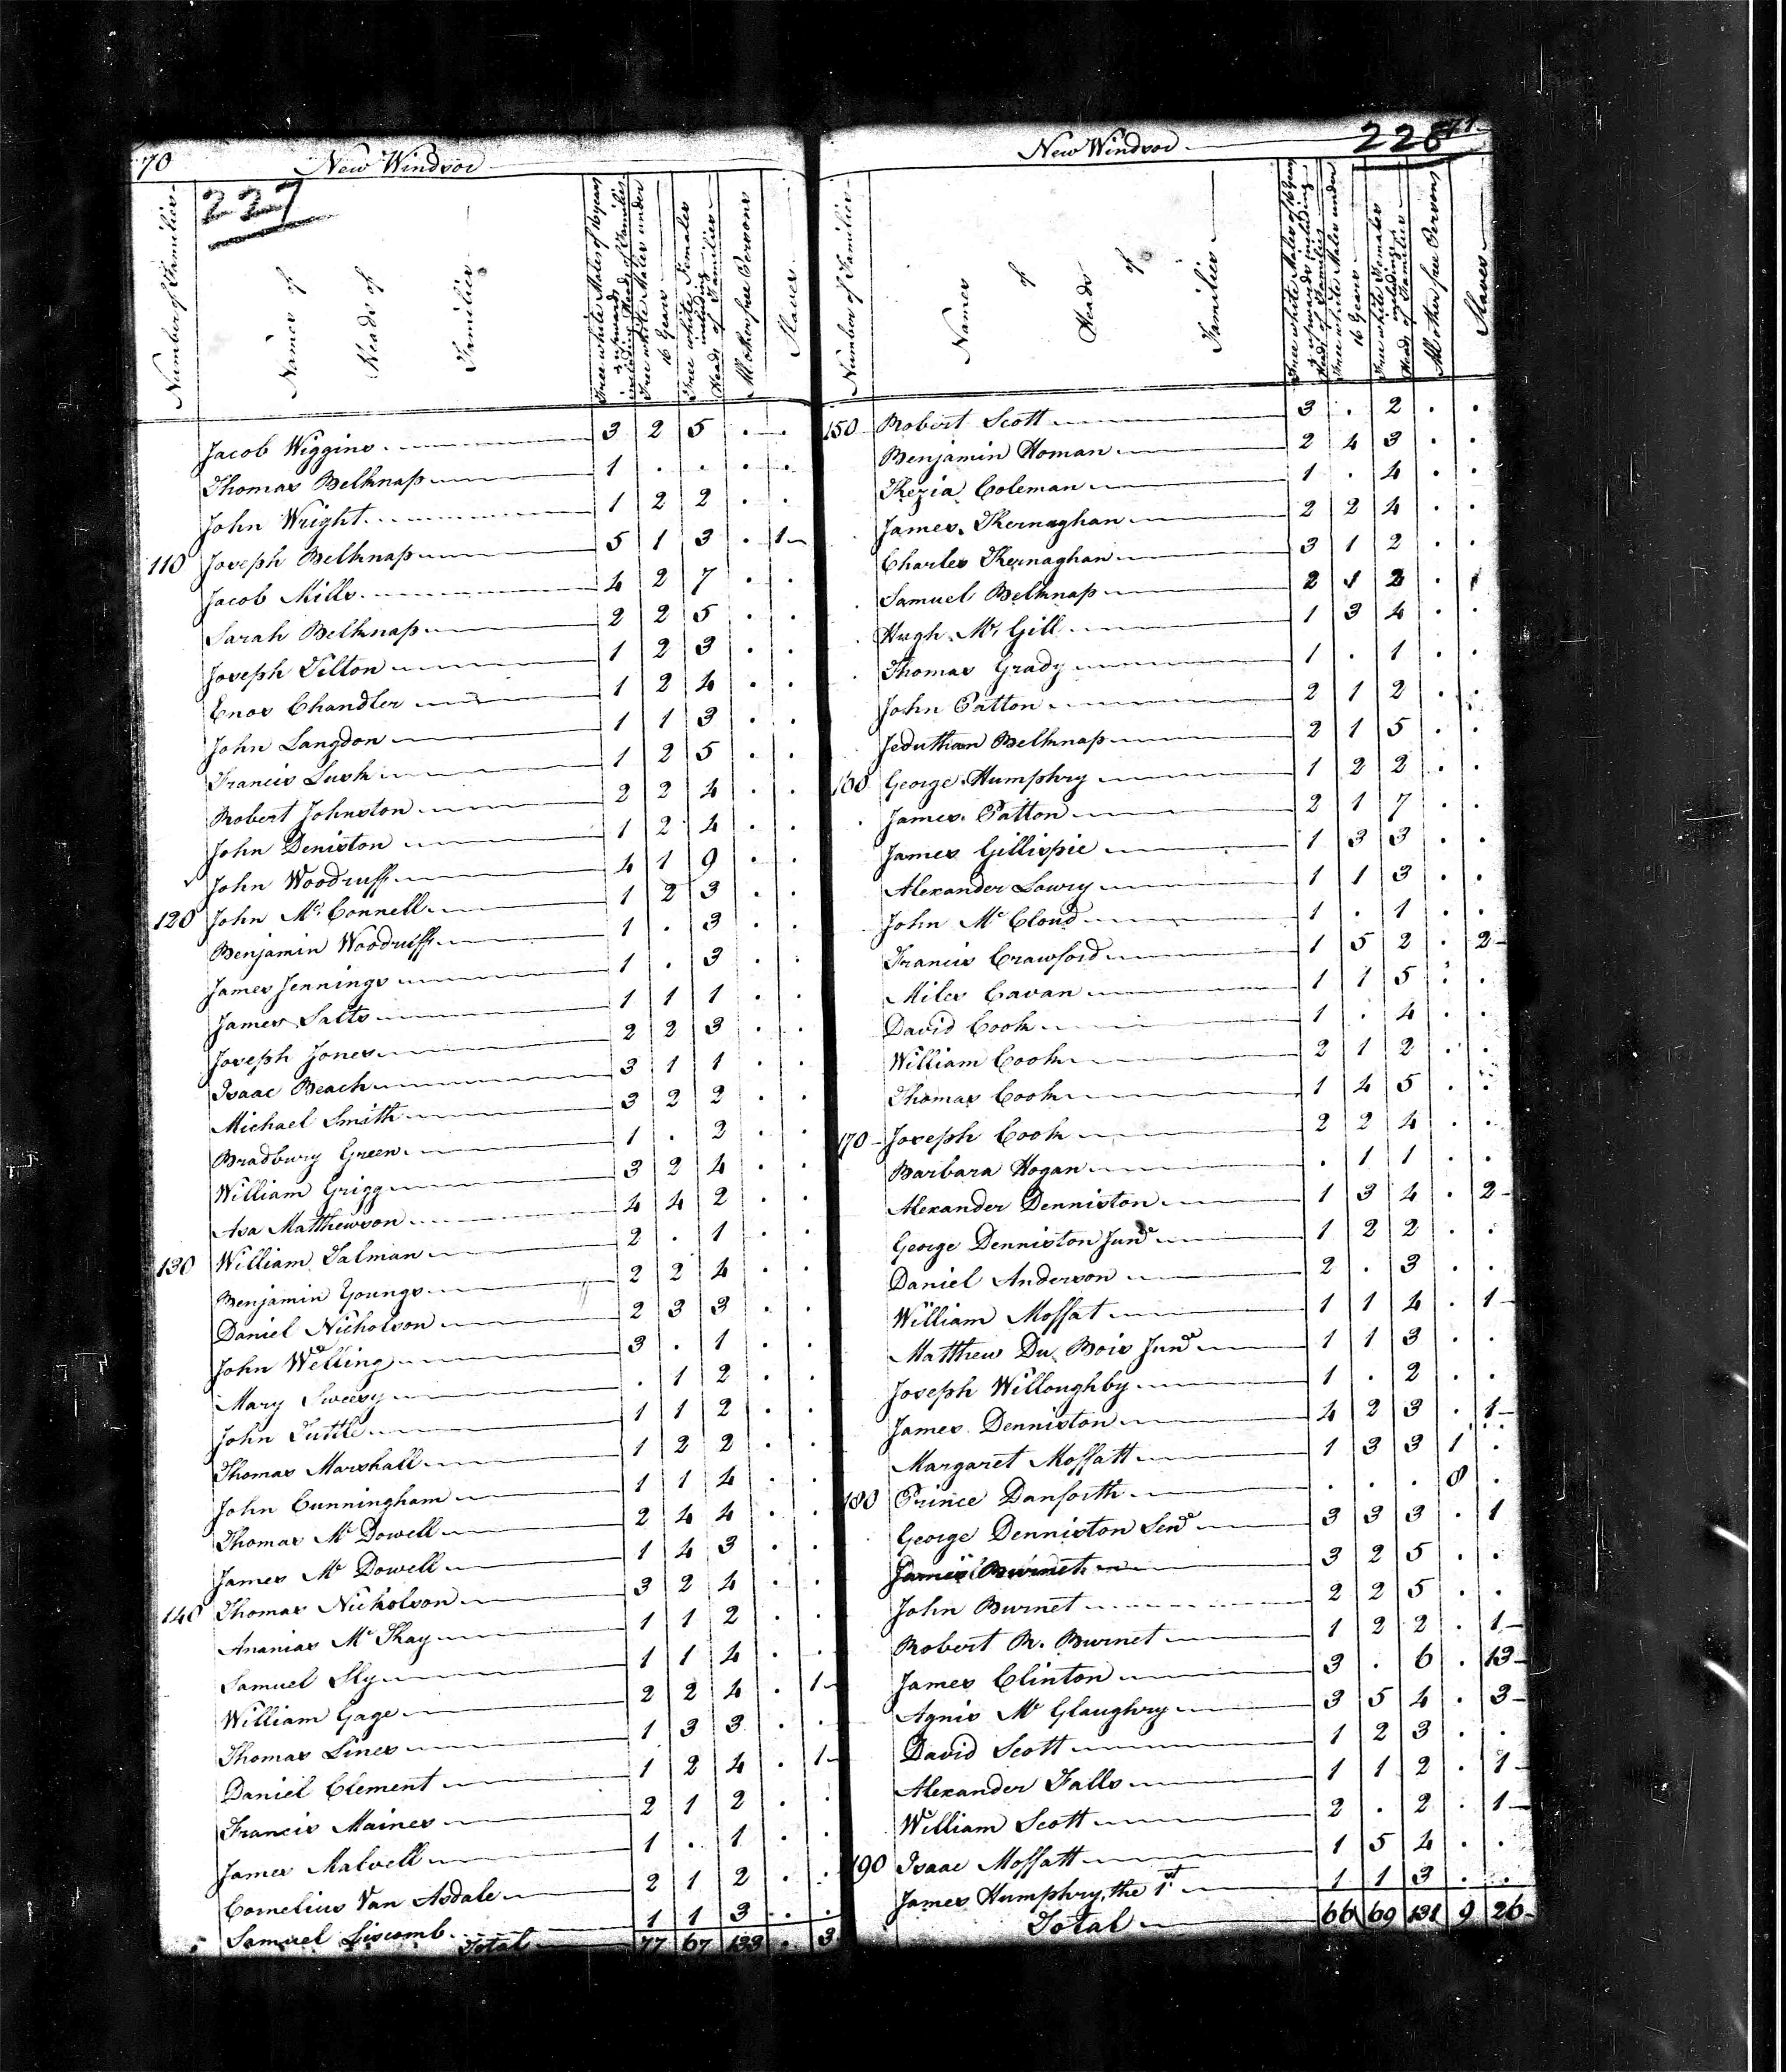 70 New Windsor
227
Number of Families
Names of Heads of Families
Free white Males of 16 years & upwards including Heads of Families
Free white Males under 16 Years
Free white Females including Heads of Families
All other free Persons
Slaves
Jacob Wiggins 3 2 5 . .
Thomas Belknap 1 . . . .
John Wright 1 2 2 . .
110 Joseph Belknap 5 1 3 . 1
Jacob Mills 4 2 7 . .
Sarah Belknap 2 2 5 . .
Joseph Tilton 1 2 3 . .
Enos Chandler 1 2 4 . .
John Langdon 1 1 3 . .
Francis Lusk 1 2 5 . .
Robert Johnston 2 2 4 . .
John Deniston 1 2 4 . .
John Woodruff 4 1 9 . .
120 John Mc Connell 1 2 3 . .
Benjamin Woodruff 1 . 3 . .
James Jennings 1 . 3 . .
James Salts 1 1 1 . .
Joseph Jones 2 2 3 . .
Isaac Beach 3 1 1 . .
Michael Smith 3 2 2 . .
Bradbury Green 1 . 2 . .
William Grigg 3 2 4 . .
Asa Matthewson 4 4 2 . .
130 William Talman 2 . 1 . .
Benjamin Youngs 2 2 4 . .
Daniel Nicholson 2 3 3 . .
John Welling 3 . 1 . .
Mary Sweesy . 1 2 . .
John Tuttle 1 1 2 . .
Thomas Marshall 1 2 2 . .
John Cunningham 1 1 4 . .
Thomas Mc Dowell 2 4 4 . .
James Mc Dowell 1 4 3 . .
140 Thomas Nicholson 3 2 4 . .
Ananias Mc Kay 1 1 2 . .
Samuel Sly 1 1 4 . .
William Gage 2 2 4 . 1
Thomas Lines 1 3 3 . .
Daniel Clement 1 2 4 . 1
Francis Maines 2 1 2 . .
James Malvell 1 . 1 . .
Cornelius Van Asdale 2 1 2 . .
Samuel Liscomb 1 1 3 . .
Total 77 67 133 . 3
New Windsor 71
228
Number of Families
Names of Heads of Families
Free white Males of 16 Years & upwards including Heads of Families
Free white Males under 16 Years
Free white Females including Heads of Families
All other free Persons
Slaves
150 Robert Scott 3 . 2 . .
Benjamin Homan 2 4 3 . .
Kezia Coleman 1 . 4 . .
James Kernaghan 2 2 4 . .
Charles Kernaghan 3 1 2 . .
Samuel Belknap 2 1 2 . 1
Hugh Mc Gill 1 3 4 . .
Thomas Grady 1 . 1 . .
John Patton 2 1 2 . .
Jeduthan Belknap 2 1 5 . .
160 George Humphry 1 2 2 . .
James Patton 2 1 7 . .
James Gillispie 1 3 3 . .
Alexander Lowry 1 1 3 . .
John Mc Cloud 1 . 1 . .
Francis Crawford 1 5 2 . 2
Miles Cavan 1 1 5 . .
David Cook 1 . 4 . .
William Cook 2 1 2 . .
Thomas Cook 1 4 5 . .
170 Joseph Cook 2 2 4 . .
Barbara Hogan . 1 1 . .
Alexander Denniston 1 3 4 . 2
George Denniston Junr 1 2 2 . .
Daniel Anderson 2 . 3 . .
William Moffat 1 1 4 . 1
Matthew Du Bois Junr 1 1 3 . .
Joseph Willoughby 1 . 2 . .
James Denniston 4 2 3 . 1
Margaret Moffatt 1 3 3 1 .
180 Prince Danforth . . . 8 .
George Denniston Senr 3 3 3 . 1
James Burnet 3 2 5 . .
John Burnet 2 2 5 . .
Robert R. Burnet 1 2 2 . 1
James Clinton 3 . 6 . 13
Agnis Mc Glaughry 3 5 4 . 3
David Scott 1 2 3 . .
Alexander Falls 1 1 2 . 1
William Scott 2 . 2 . 1
190 Isaac Moffatt 1 5 4 . .
James Humphry, the 1st 1 1 3 . .
Total 66 69 131 9 26